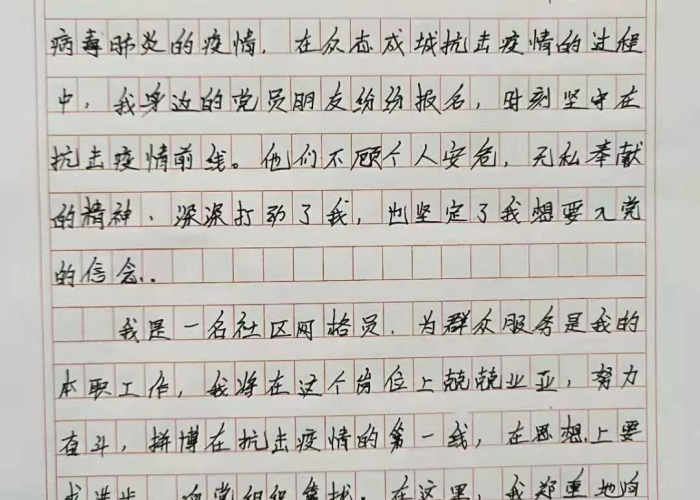 病毒肺炎的疫情，在众志成城抗击疫情的过程
中，我身边的党员朋友纷纷报名，时刻坚守在
抗击疫情前线。他们不顾个人安危，无私奉献
的精神、深深打动了我，也坚定了我想要入党
的信念..
我是一名社区网格员，为群众服务是我的
本职工作，我将在这个岗位上兢兢业业，努力
奋斗，拼博在抗击疫情的第一线，在思想上要
求进步，向党组织靠拢。在这里，我郑重地向